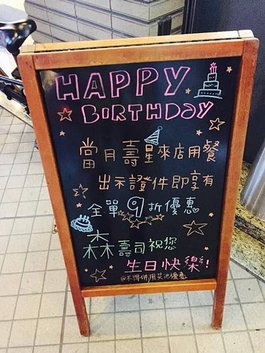 HAPPY
BIRTHDAY
當月壽星來店用餐
出示證件即享有
全單9折優惠
森壽司祝您
生日快樂!